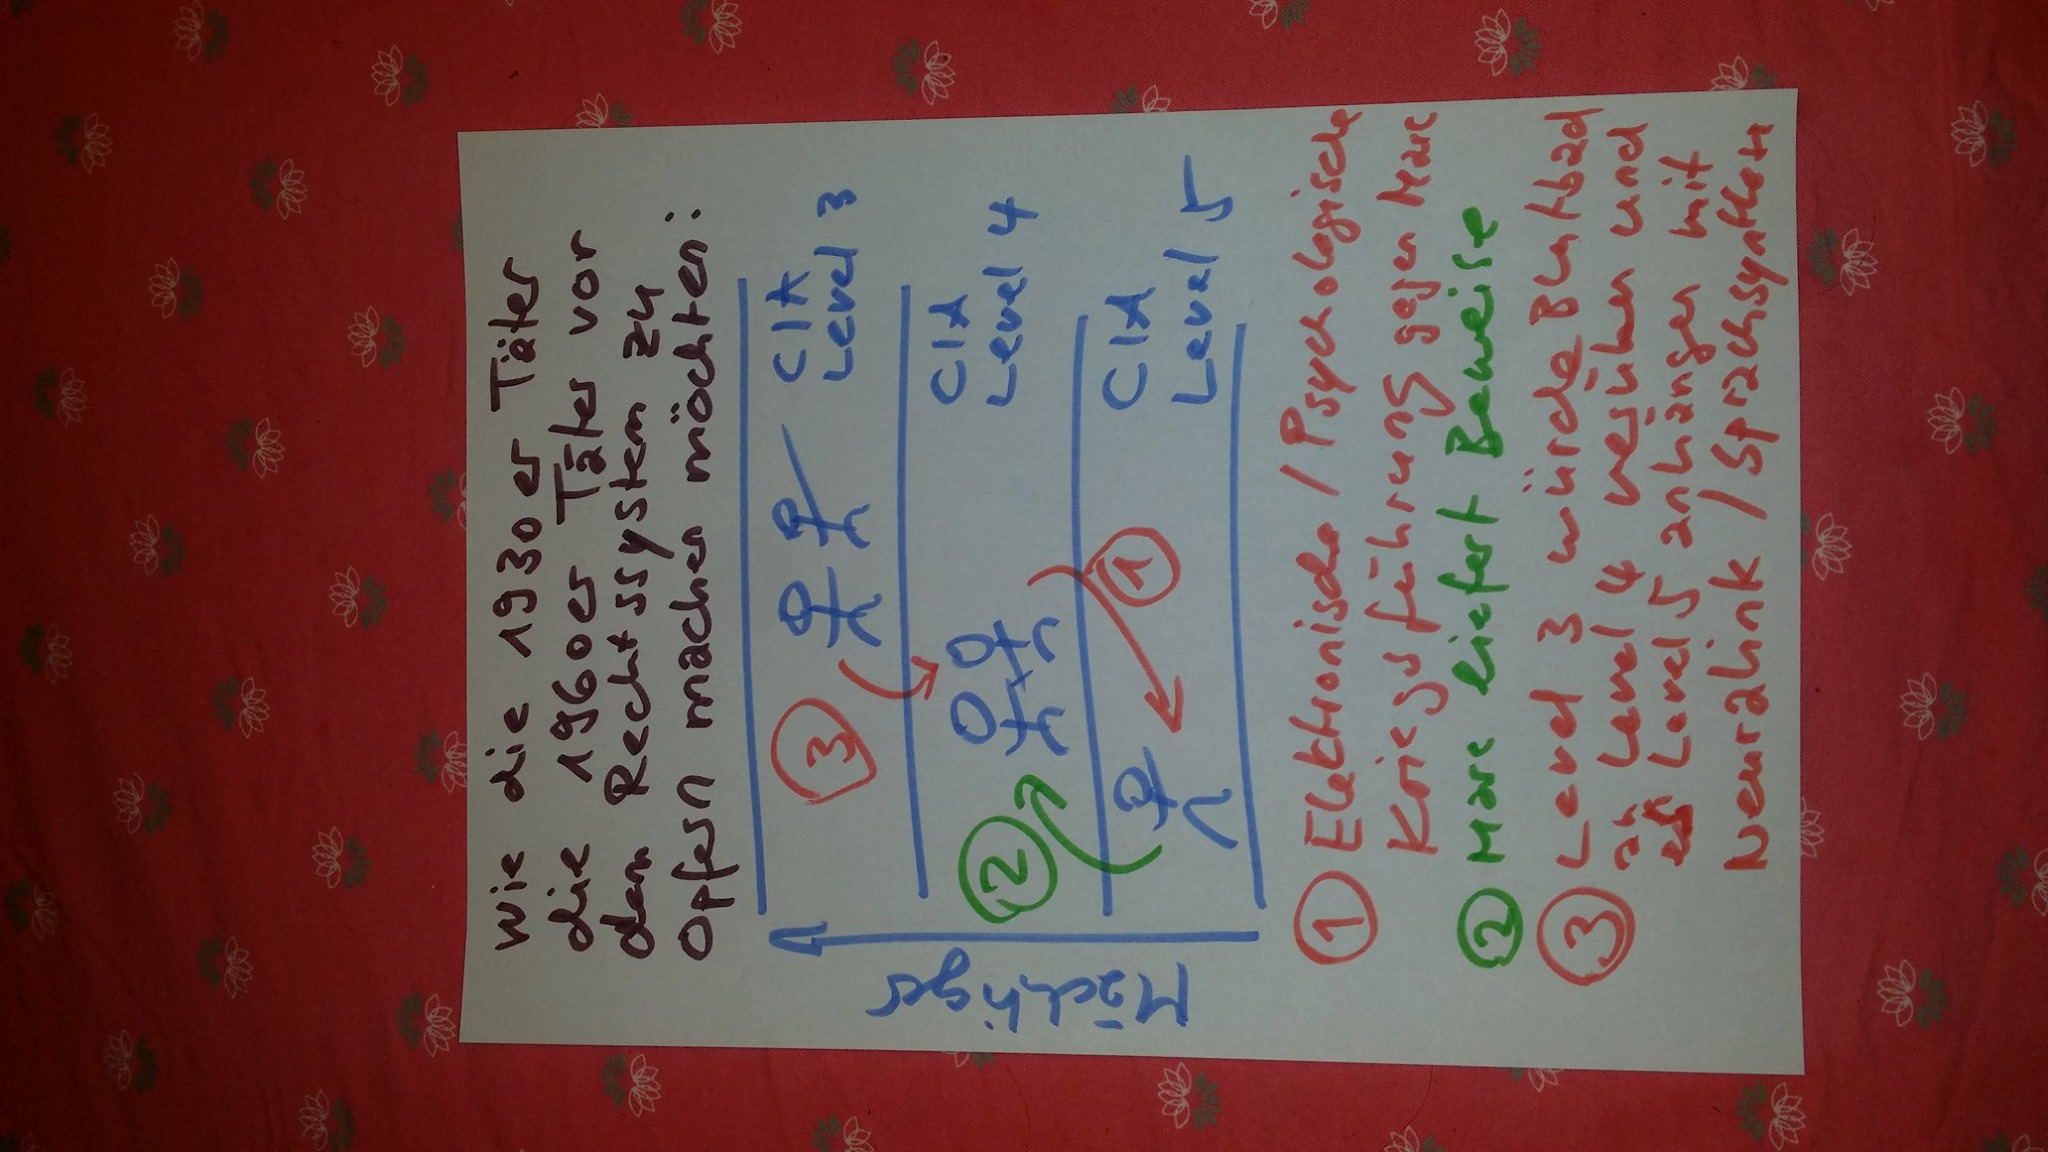 Wie die 1930er Täter
die 1960er Täter vor
dem Rechtssystem zu
Opfern machen möchten:
CIA
Level 3
3
CIA
Level 4
2
CIA
Level 5
1
Mächtiger
1 Elektronische / Psychologische
Kriegsführung gegen Marc
2 Marc liefert Beweise
3 Level 3 würde Blutbad
an Level 4 verüben und
es Level 5 anhängen mit
Neuralink / Sprachsynthese